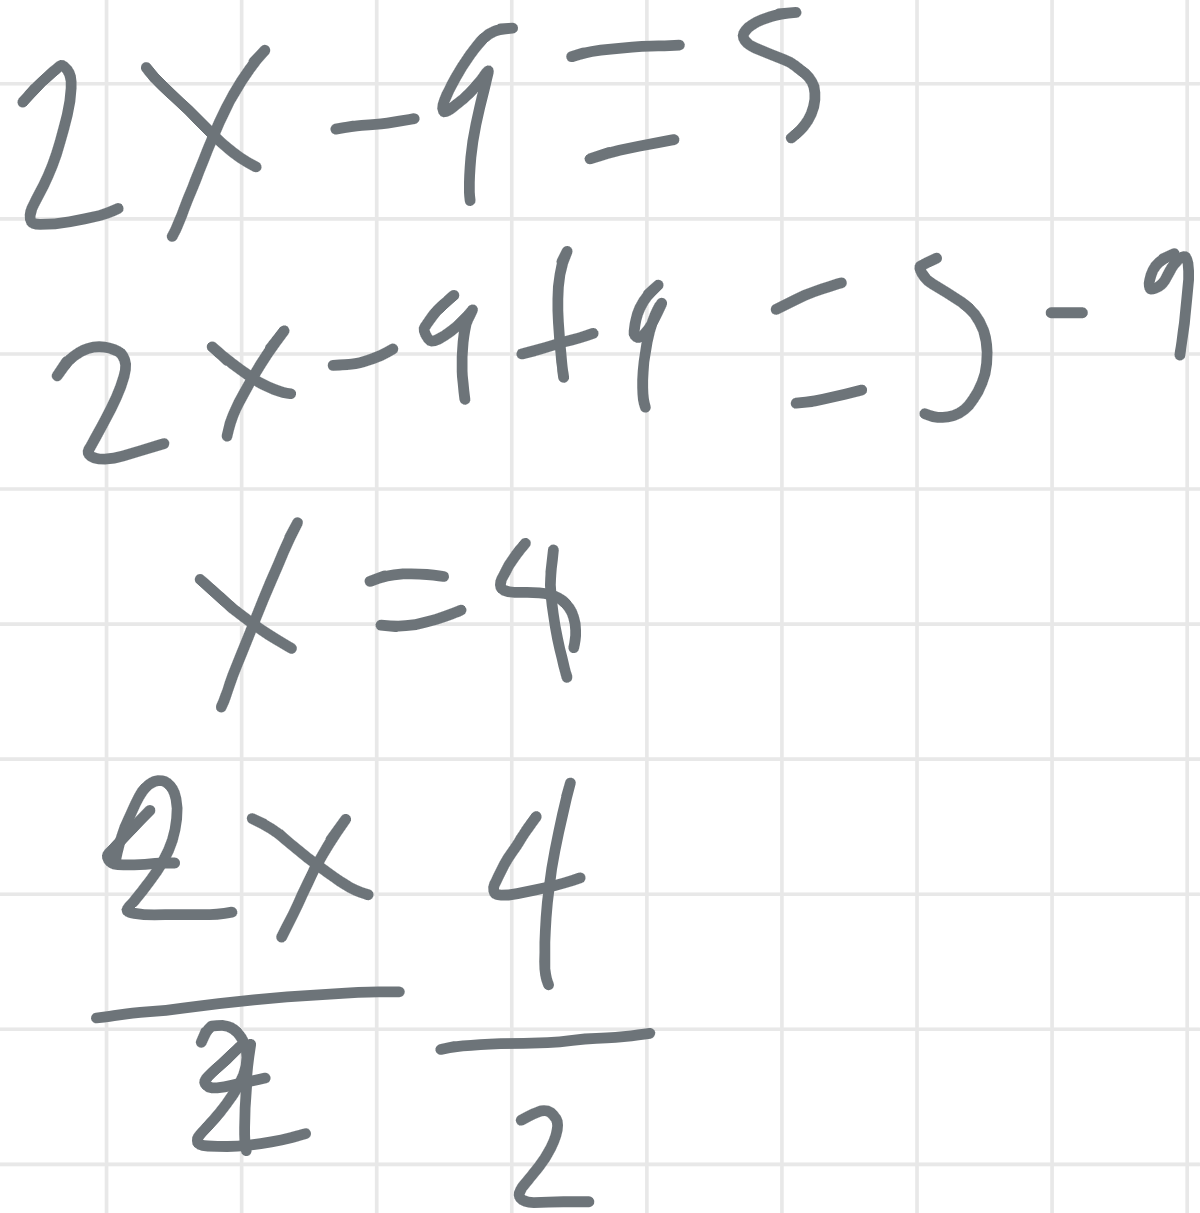 2x - 9 = 5
2x - 9 + 9 = 5 - 9
x = 4
2x 4
2 2